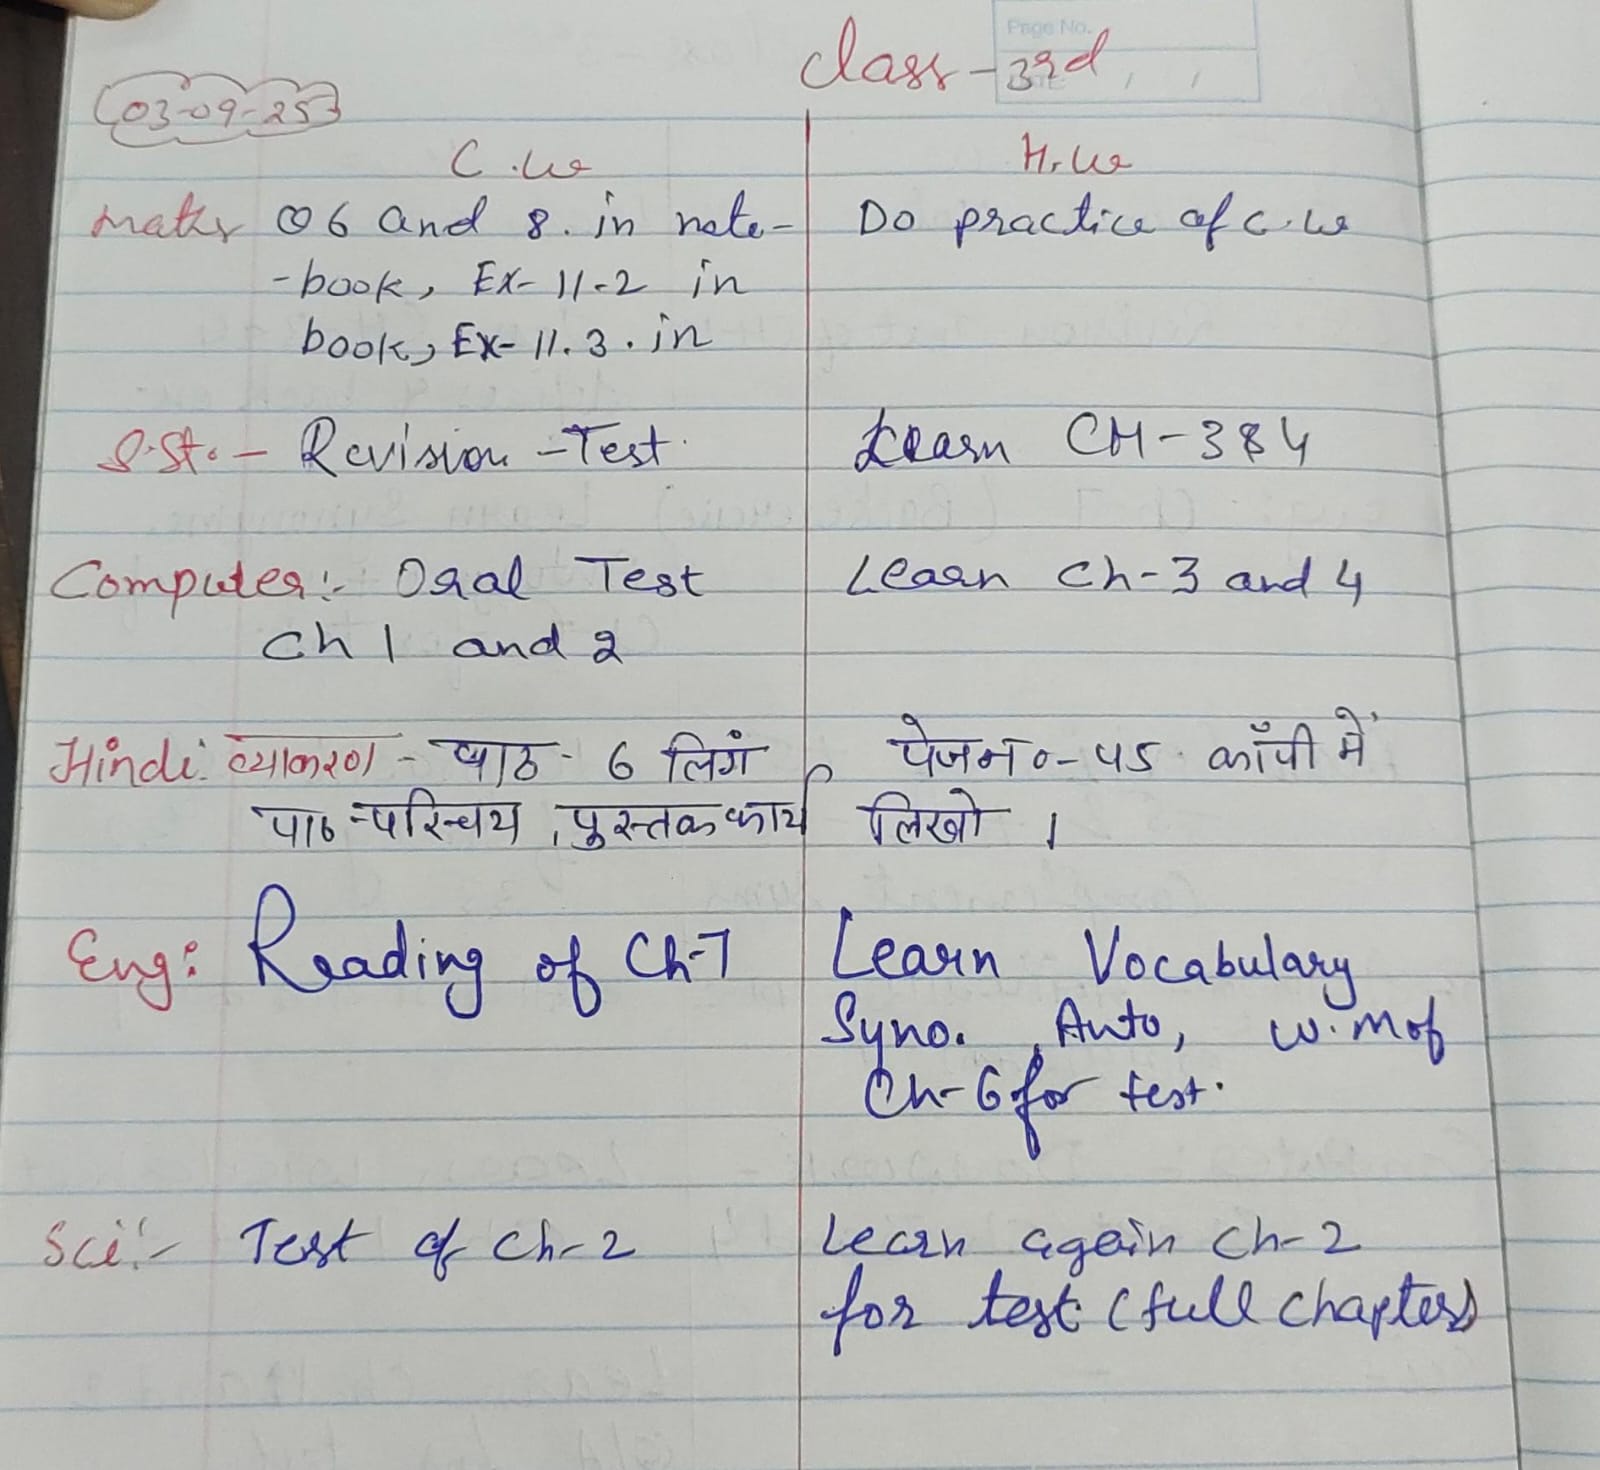 Page No.
Class - 3rd
03-09-25
C.w
H.w
Maths Q6 and 8. in note-
-book, Ex- 11.2 in
book, Ex- 11.3. in
Do practice of c.w
S.St. - Revision - Test.
Learn CH-3&4
Computer:- Oral Test
Ch 1 and 2
Learn Ch-3 and 4
Hindi: व्याकरण - पाठ - 6 लिगं
पाठ-परिचय, पुस्तक कार्य
पेज न०- 45 कॉपी में
लिखो ।
Eng: Reading of Ch-7
Learn Vocabulary
Syno. , Anto, w.m of
Ch-6 for test.
Sci:- Test of Ch-2
Learn again Ch-2
for test (full chapter)